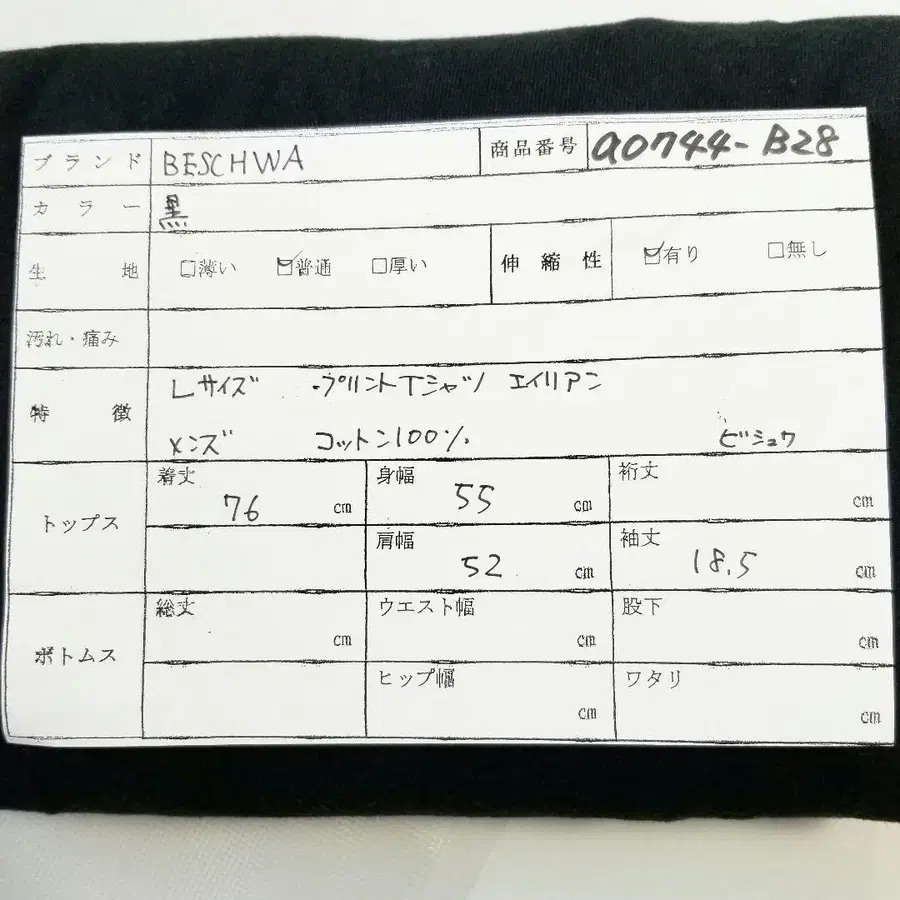 ブランド BESCHWA 商品番号 a0744-B28
カラー 黒
生地 □薄い ☑普通 □厚い 伸縮性 ☑有り □無し
汚れ・痛み
特徴 Lサイズ ・プリントTシャツ エイリアン
メンズ コットン100% ビシュワ
トップス 着丈 76 cm 身幅 55 cm 裄丈 cm
肩幅 52 cm 袖丈 18.5 cm
ボトムス 総丈 cm ウエスト幅 cm 股下 cm
ヒップ幅 cm ワタリ cm